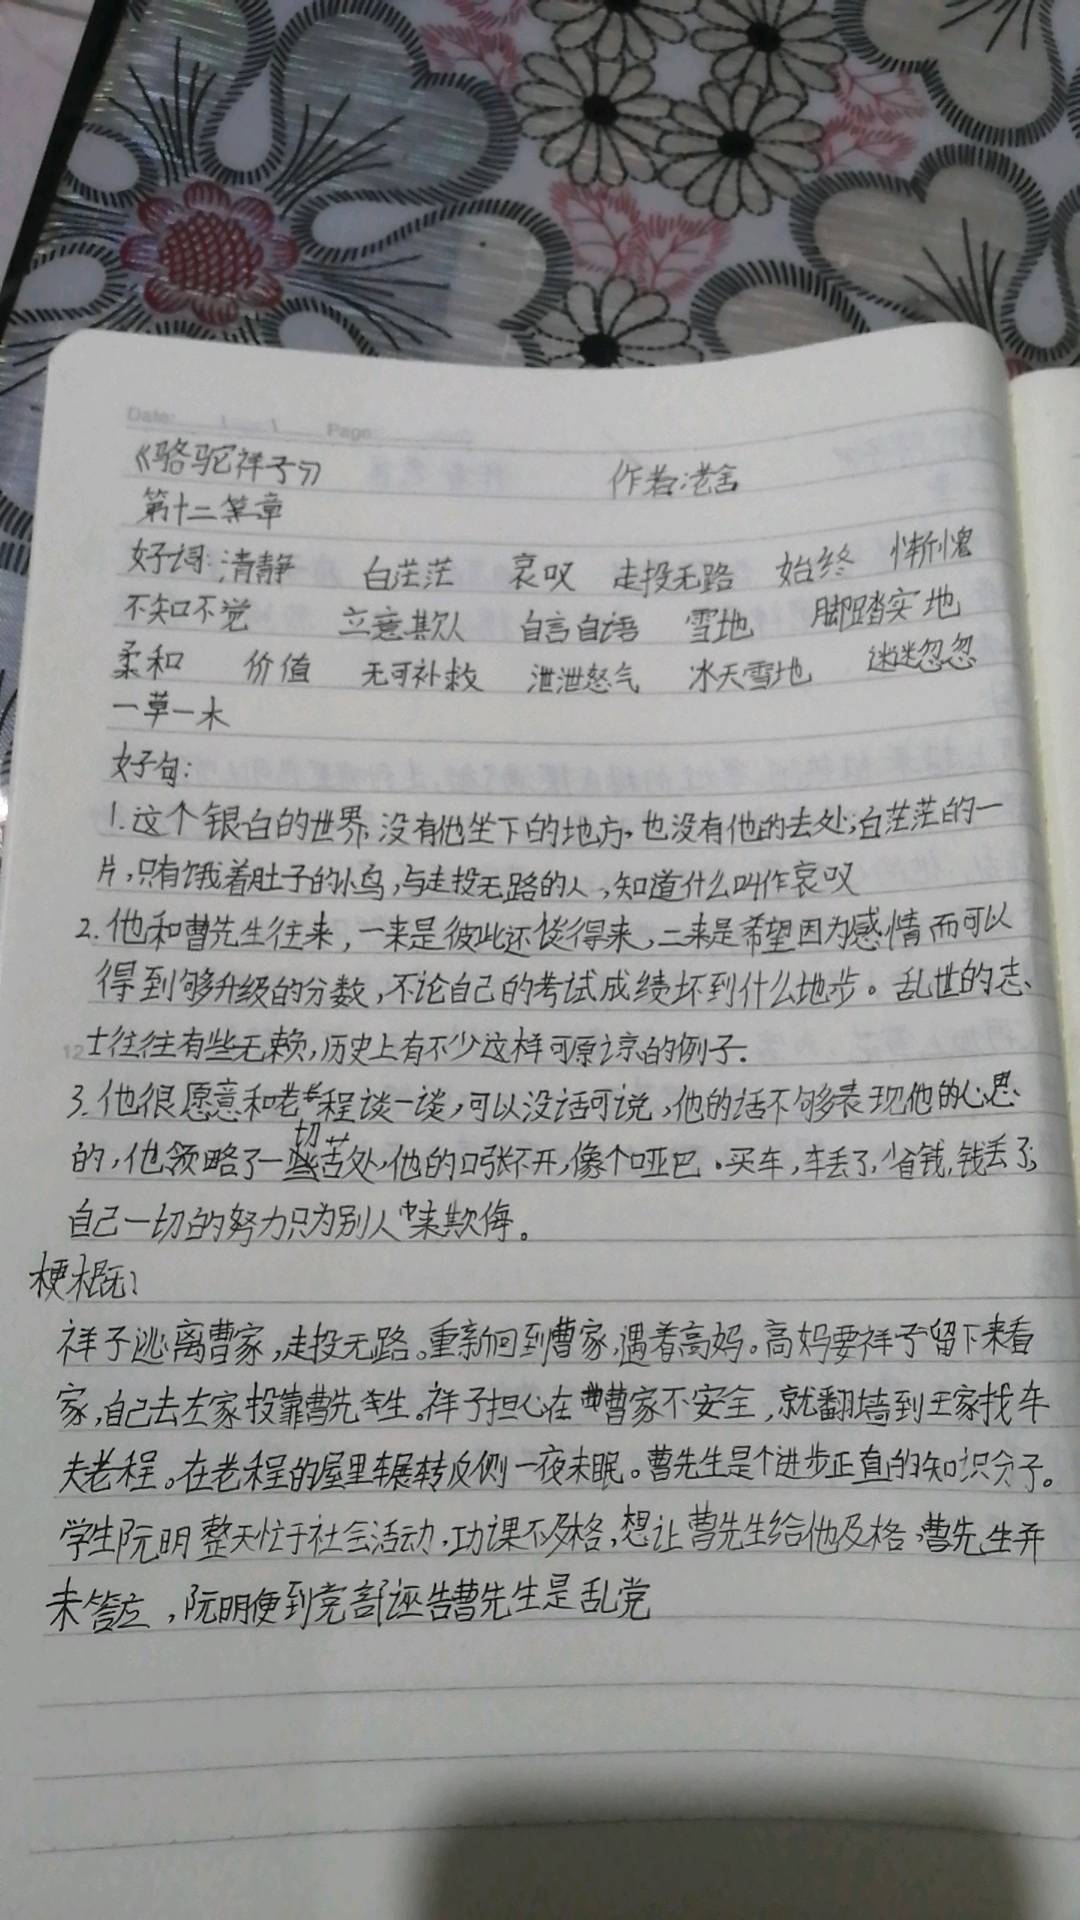 Date: Page:
《骆驼祥子》 作者:老舍
第十二章
好词:清静 白茫茫 哀叹 走投无路 始终 惭愧
不知不觉 立意欺人 自言自语 雪地 脚踏实地
柔和 价值 无可补救 泄泄怒气 冰天雪地 迷迷忽忽
一草一木
好句:
1.这个银白的世界,没有他坐下的地方,也没有他的去处;白茫茫的一
片,只有饿着肚子的小鸟,与走投无路的人,知道什么叫作哀叹
2.他和曹先生往来,一来是彼此还谈得来,二来是希望因为感情而可以
得到够升级的分数,不论自己的考试成绩坏到什么地步。乱世的志
士往往有些无赖,历史上有不少这样可原谅的例子.
3.他很愿意和老程谈一谈,可以没话可说,他的话不够表现他的心思
的,他领略了一切苦处,他的口张不开,像个哑巴。买车,车丢了,省钱,钱丢了;
自己一切的努力只为别人来欺侮。
梗概:
祥子逃离曹家,走投无路。重新回到曹家,遇着高妈。高妈要祥子留下来看
家,自己去左家投靠曹先生。祥子担心在曹家不安全,就翻墙到王家找车
夫老程。在老程的屋里辗转反侧一夜未眠。曹先生是个进步正直的知识分子。
学生阮明整天忙于社会活动,功课不及格,想让曹先生给他及格,曹先生并
未答应,阮明便到党部诬告曹先生是乱党